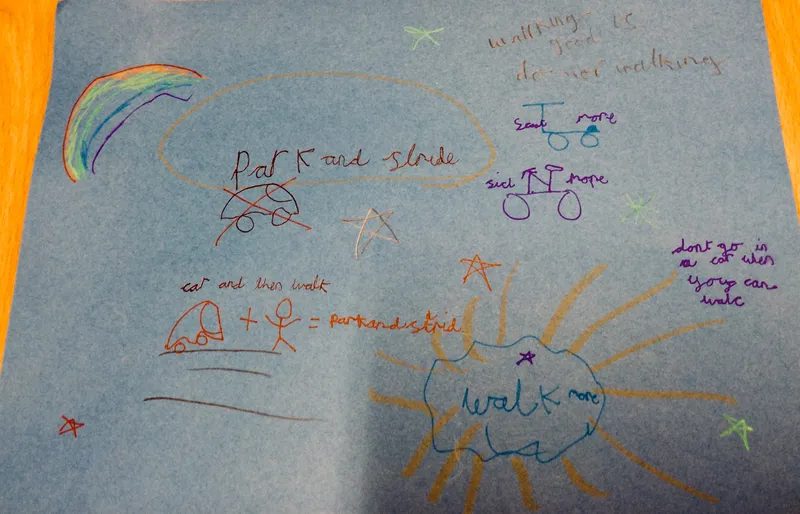 walking
good is
do mor walking
Park and stride
scut more
sicl more
dont go in
a car when
you can
walc
car and then walk
+ = Parkandstrid
walk more